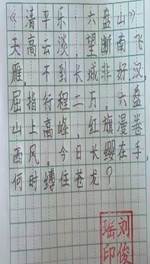 《清平乐·六盘山》
天高云淡,望断南飞
雁。不到长城非好汉,
屈指行程二万。六盘
山上高峰,红旗漫卷
西风。今日长缨在手,
何时缚住苍龙?
刘俊
印